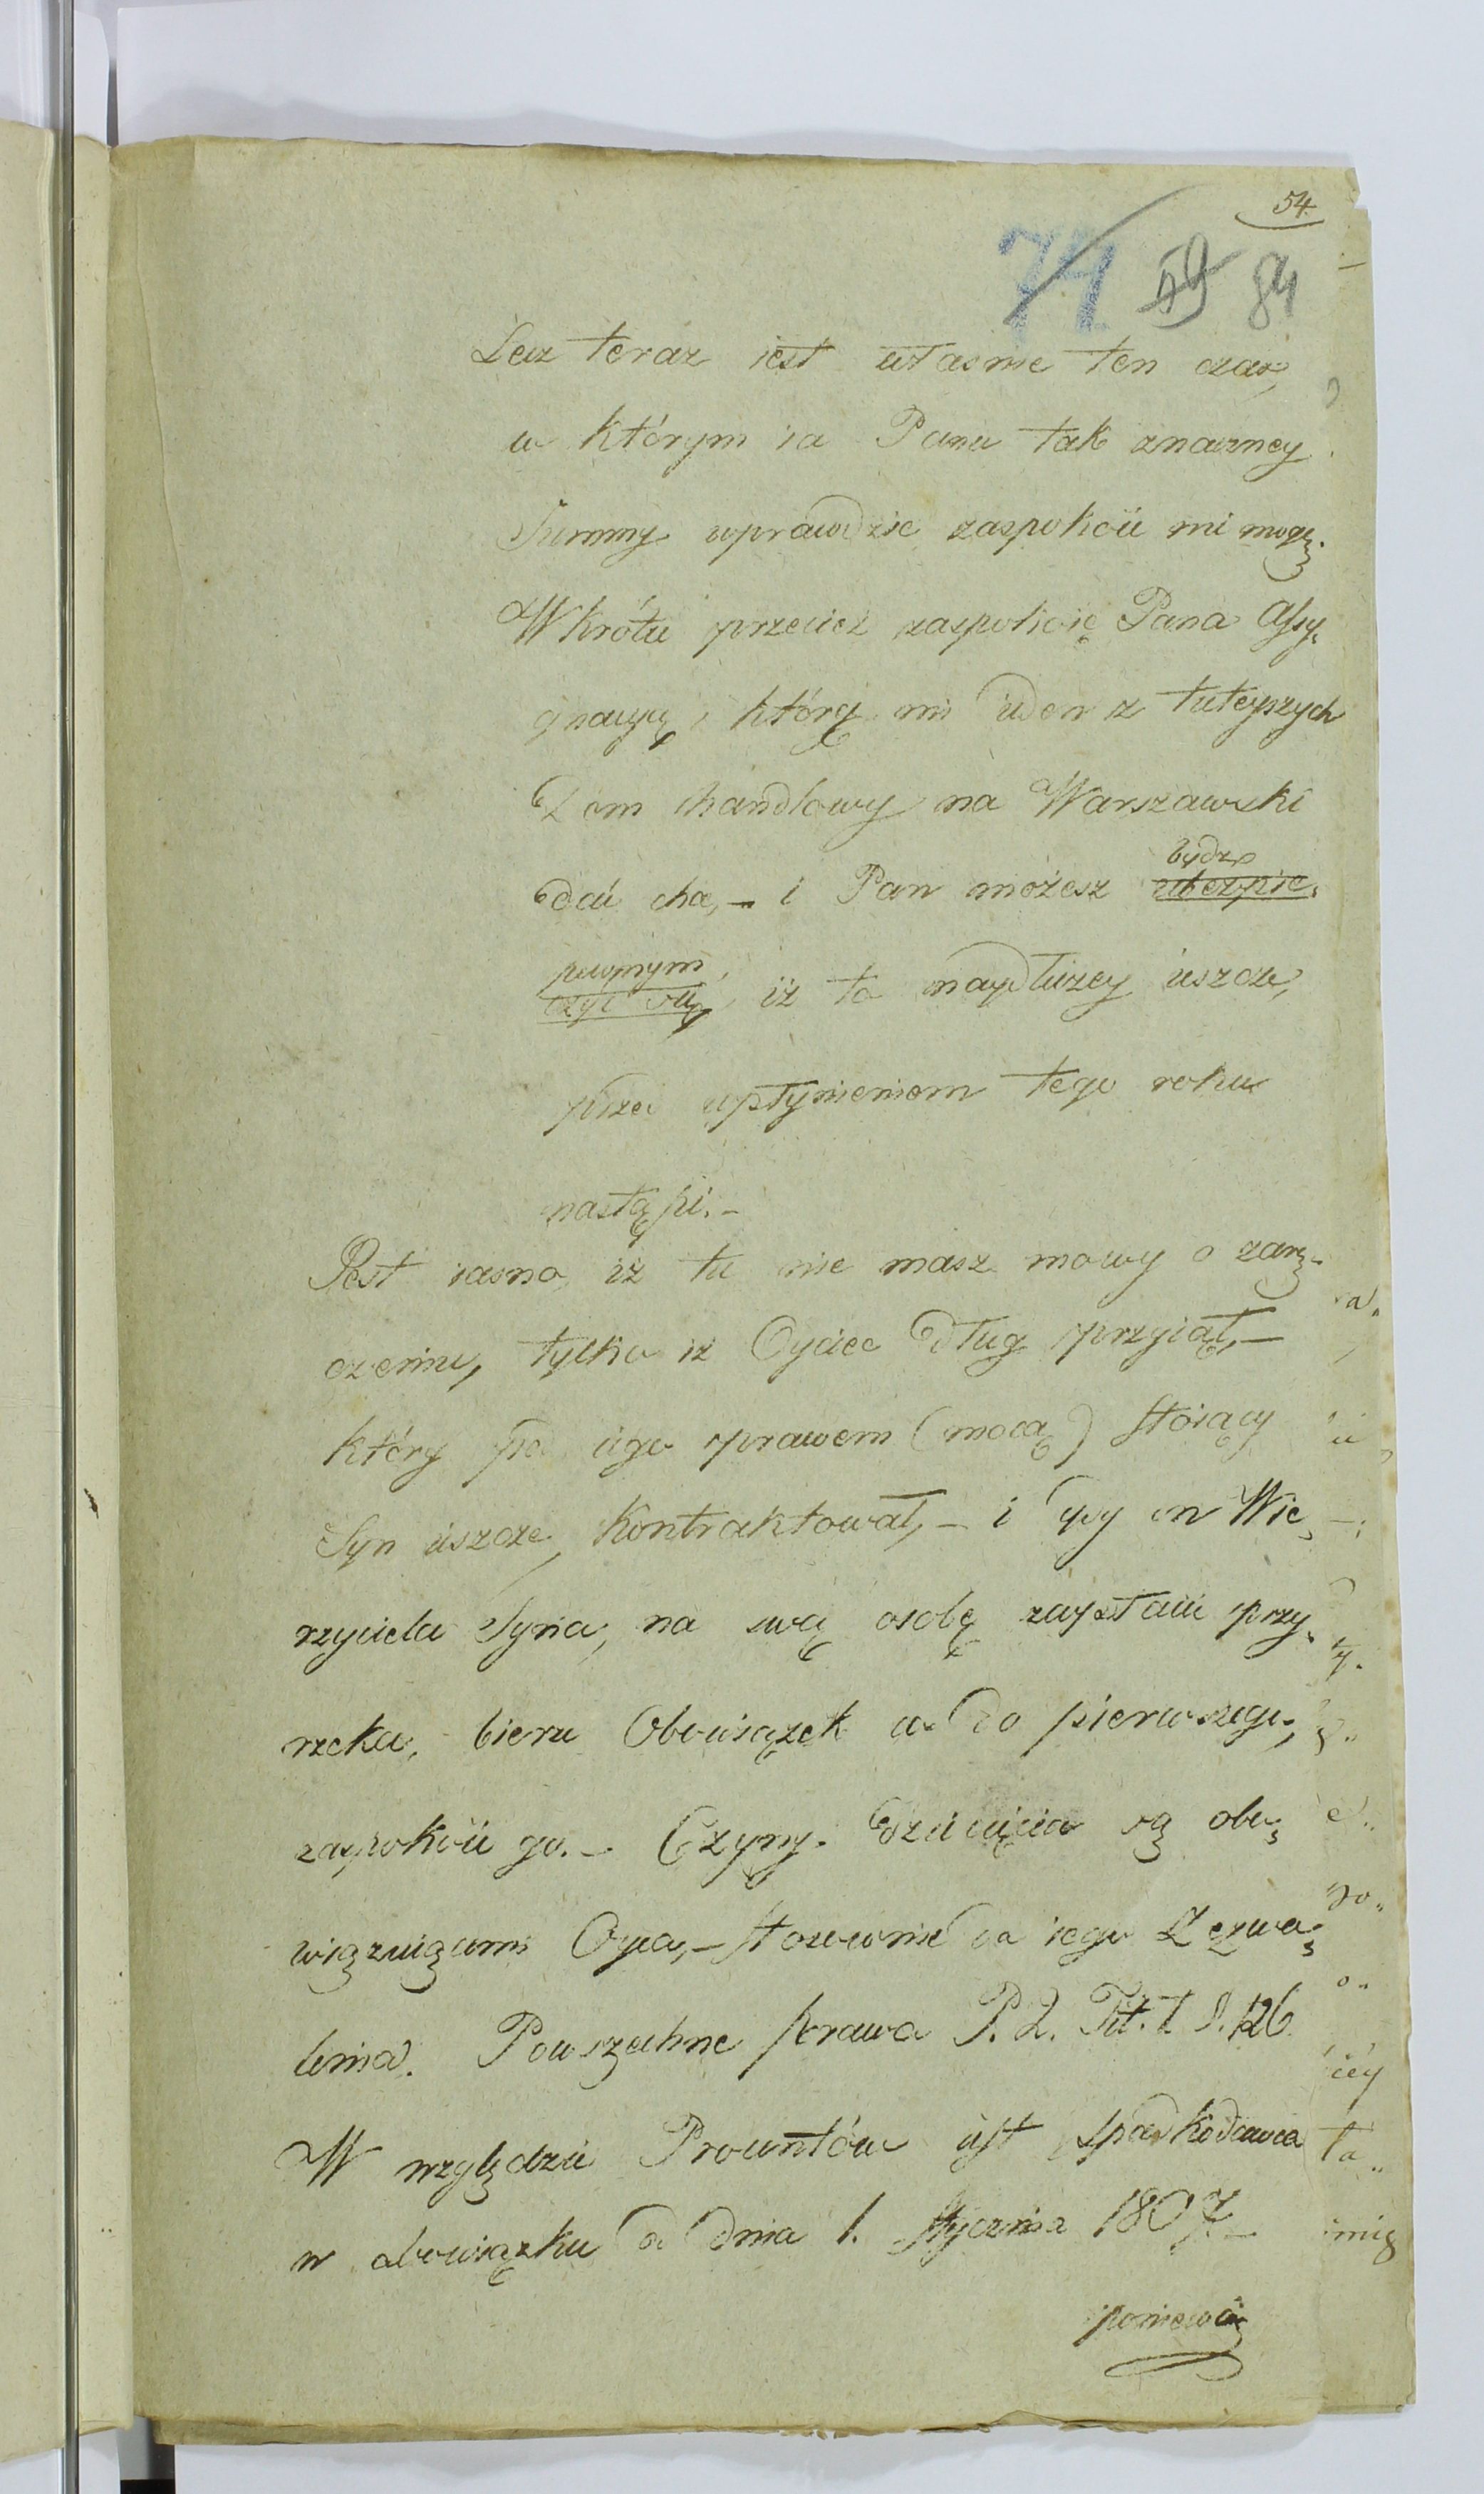 54.
74 59 84
Lecz teraz iest własnie ten czas,
w którym ia Panu tak znaczney
Summy wprawdzie zaspokoić ni mogę.
Wkrótce przecież zaspokoię Pana Assy,
gnacyą, którą mi ieden z tuteyszych
Dom chandlowy na Warszawski
bydź
dać chce, – i Pan możesz ubezpie,
pewnym,
czyć się, iż to naydłużey ieszcze,
przed upłynieniem tego roku
nastąpi. –
Jest iasno iż tu nie masz mowy o zarę,
czeniu, tylko iż Oyciec dług przyiął, –
który pod iego prawem (mocą) stoiący
Syn ieszcze, kontraktował, – i gdy on Wie,
rzyciela Syna, na swą osobę zapłacić przy,
rzeka, bierze Obowiązek do pierwszego,
zaspokoić go. – Czyny dziecięcia są obo,
wiązuiącemi Oyca, – stosownie do iego Zezwo,
lenia. Powszechne prawa P. 2. Tit. 2 §. 126.
W względzie Procentów iest spadkodawca
w obowiązku od dnia 1. Stycznia 1807. –
ponieważ